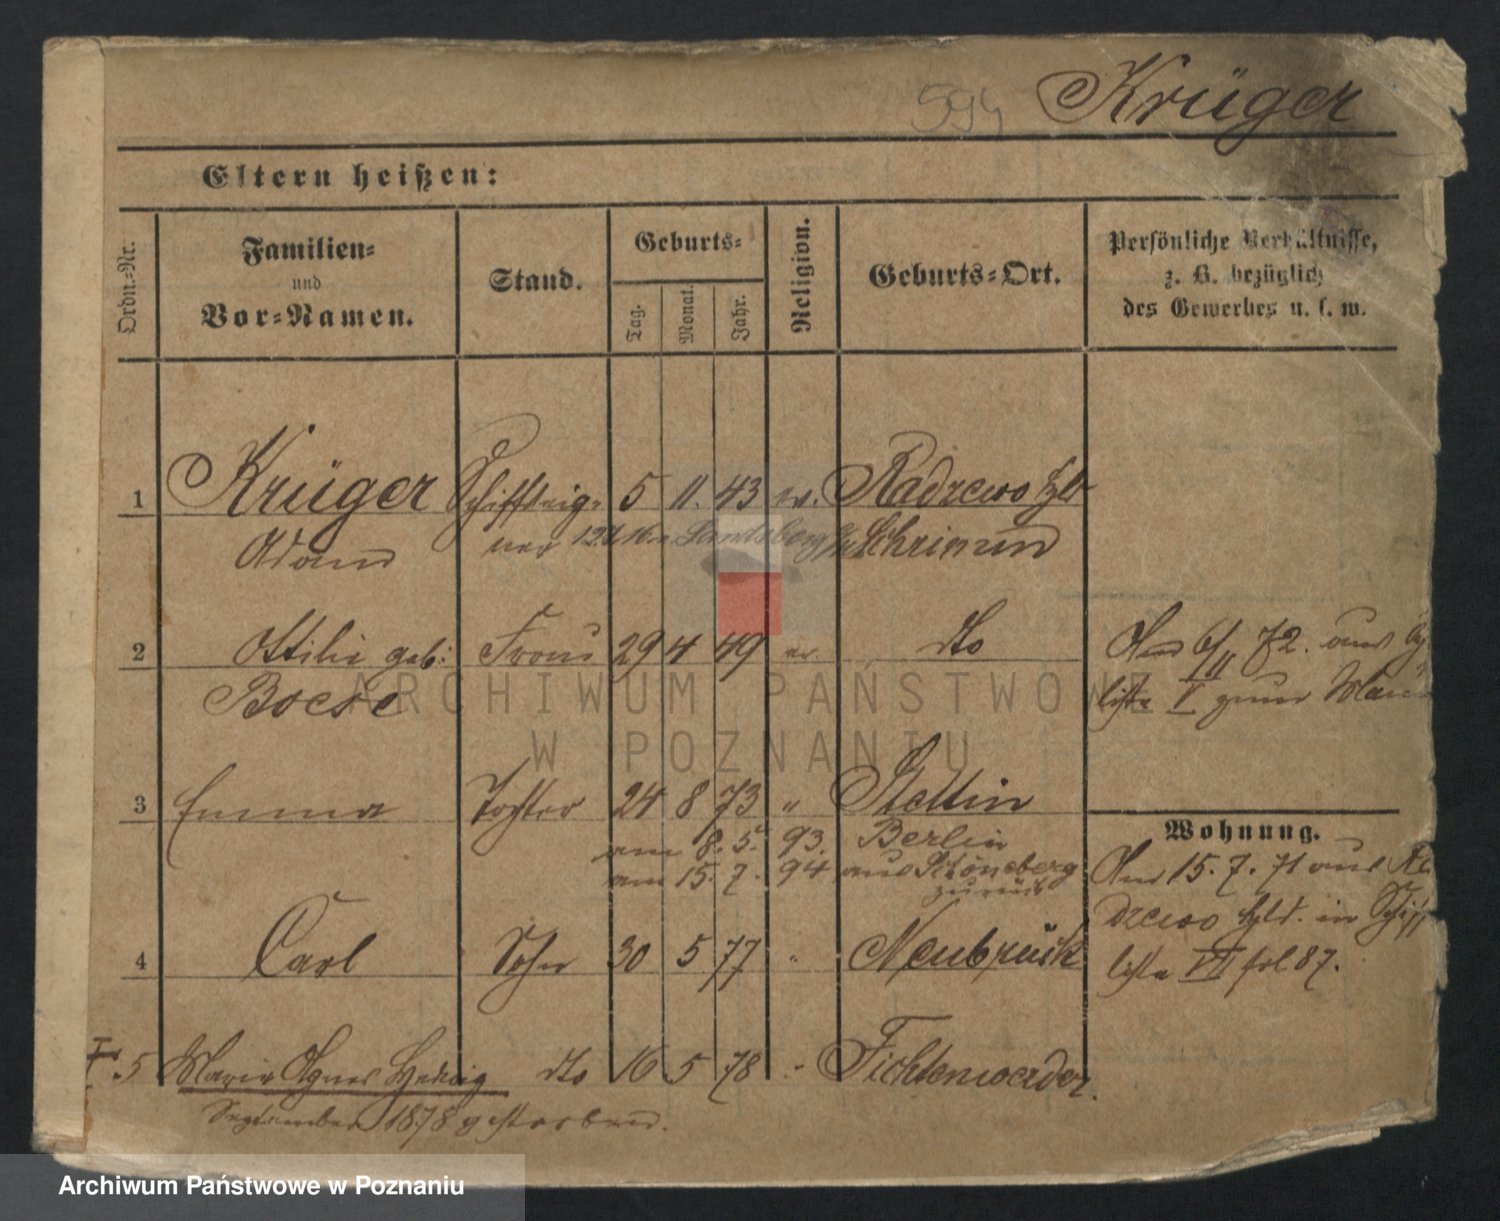 594 Krüger
Eltern heißen:
Ordn.-Nr.
Familien-
und
Vor-Namen.
Stand.
Geburts-
Tag.
Monat.
Jahr.
Religion.
Geburts-Ort.
Persönliche Verhältnisse,
z. B. bezüglich
des Gewerbes u. s. w.
1 Krüger Schiffseig- 5 11. 43 ev. Radzewo
Adam ner Landsberg Schrimm
2 Ottilie geb: Frau 29 4 49 ev. dto
Boese
3 Emma Tochter 24 8 73 " Stettin
am 8. 5. 93. Berlin
am 15. 7. 94 aus Schöneberg
zurück
4 Carl Sohn 30 5 77 " Neubrück
5 Maria Agnes Hedwig dto 16 5 78 " Fichtenwerder.
September 1878 gestorben.
72. aus
liste V zum
Wohnung.
15. 7. 71 aus Ra
dzewo Hld. in Schiff
liste VII fol 87.
ARCHIWUM PAŃSTWOWE
W POZNANIU
Archiwum Państwowe w Poznaniu